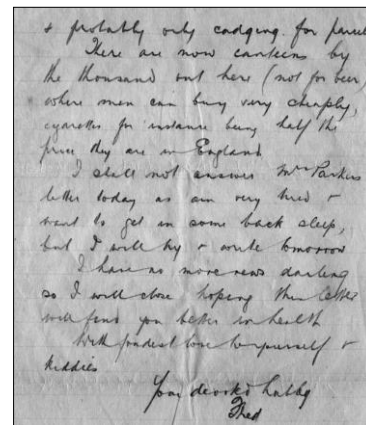 & probably only cadging for parcels
There are now canteens by
the thousand out here (not for beer)
where men can buy very cheaply,
cigarettes for instance being half the
price they are in England
I shall not answer Mrs Parkers
letter today as am very tired &
want to get in some back sleep,
but I will try & write tomorrow
I have no more news darling
so I will close hoping this letter
will find you better in health
With fondest love to yourself &
kiddies
Your devoted hubby
Fred